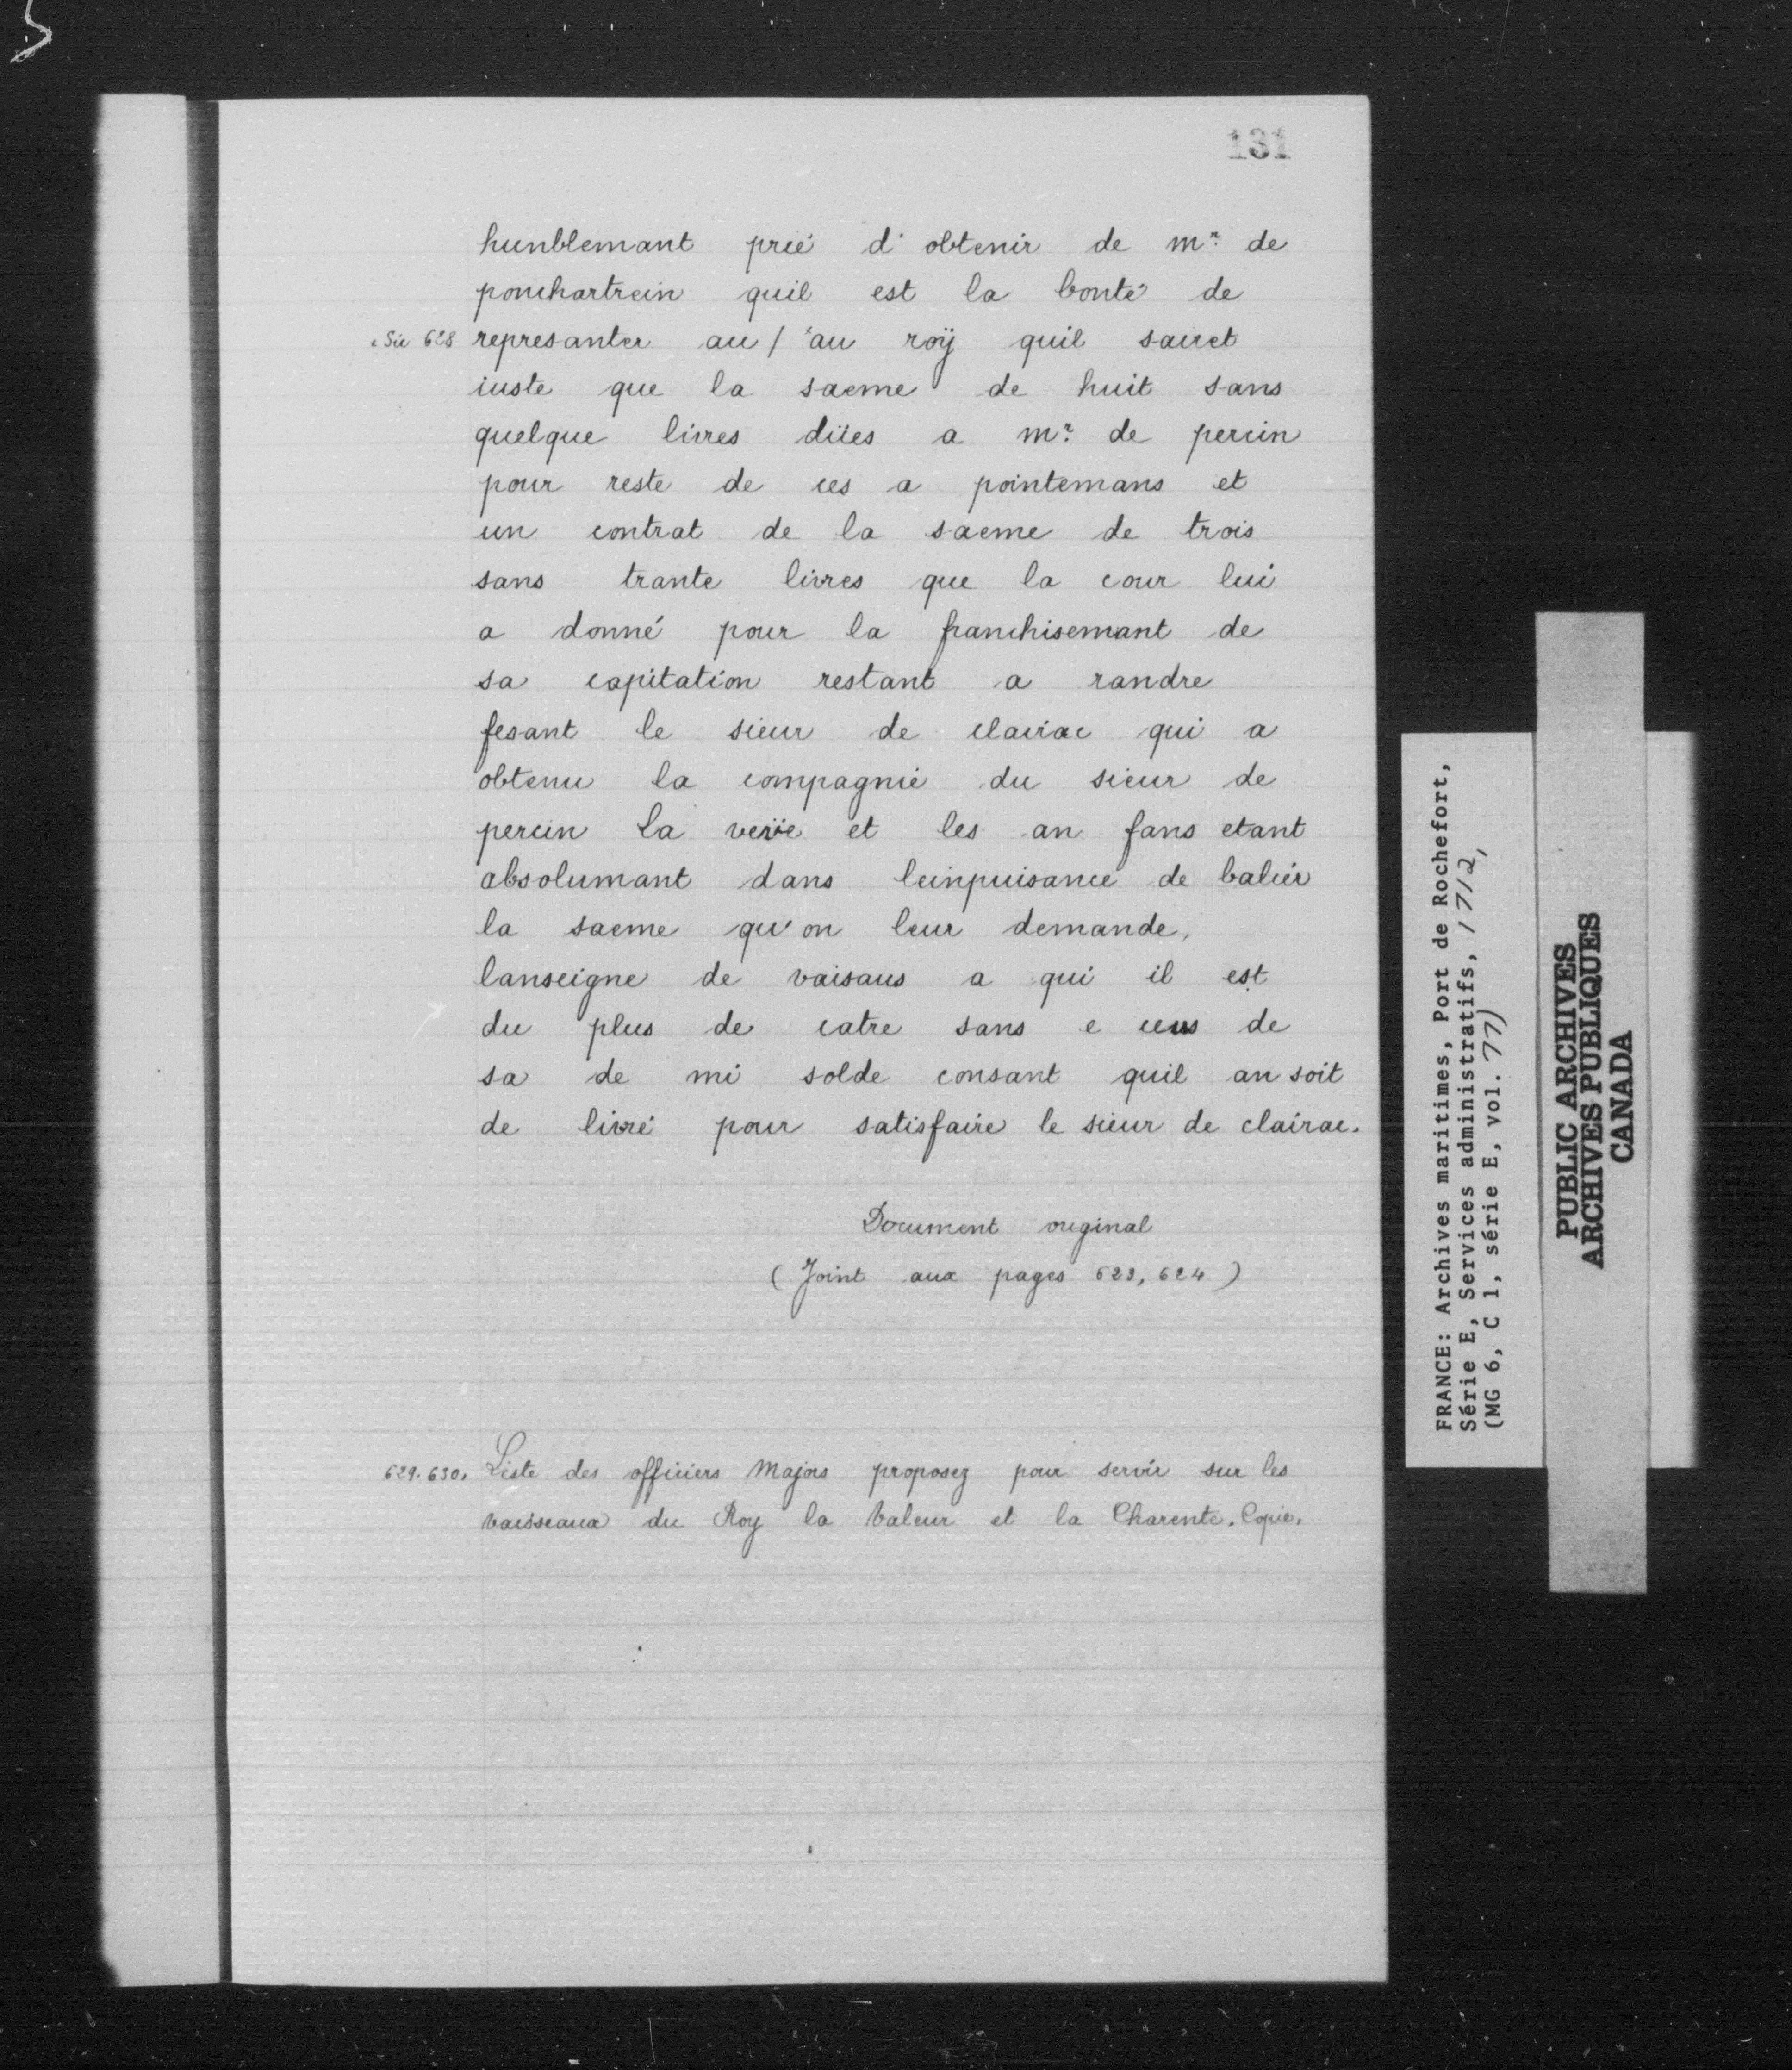 131
hunblemant prié d'obtenir de mr. de
ponchartrein quil est la bonté de
‹ Sic 628 represanter au / ‹au roÿ quil sairet
iuste que la saeme de huit sans
quelque livres dües a mr. de percin
pour reste de ces a pointemans et
un contrat de la saeme de trois
sans trante livres que la cour lui
a donné pour la franchisemant de
sa capitation restant a randre
fesant le sieur de clairac qui a
obtenu la compagnie du sieur de
percin la veüe et les an fans etant
absolumant dans leinpuisance de balier
la saeme qu'on leur demande,
lanseigne de vaisaus a qui il est
du plus de catre sans e cus de
sa de mi solde consant quil an soit
de livré pour satisfaire le sieur de clairac.
Document original
(Joint aux pages 623, 624)
629-630. Liste des officiers Majors proposez pour servir sur les
vaisseaux du Roy la Valeur et la Charente. Copie.
FRANCE: Archives maritimes, Port de Rochefort,
Série E, Services administratifs, 1712,
(MG 6, C 1, série E, vol. 77)
PUBLIC ARCHIVES
ARCHIVES PUBLIQUES
CANADA